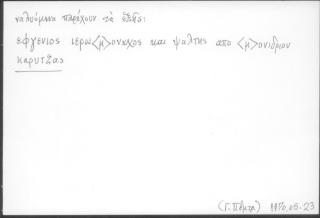 καλυόμενα παρέχουν τὰ ἑξῆς:
εφγενιος ιερω<μ>οναχος και ψαλτης απο <μ>ονιδριου
καρυτζας
(Γ. Πάλμρα) 1970, 05-23